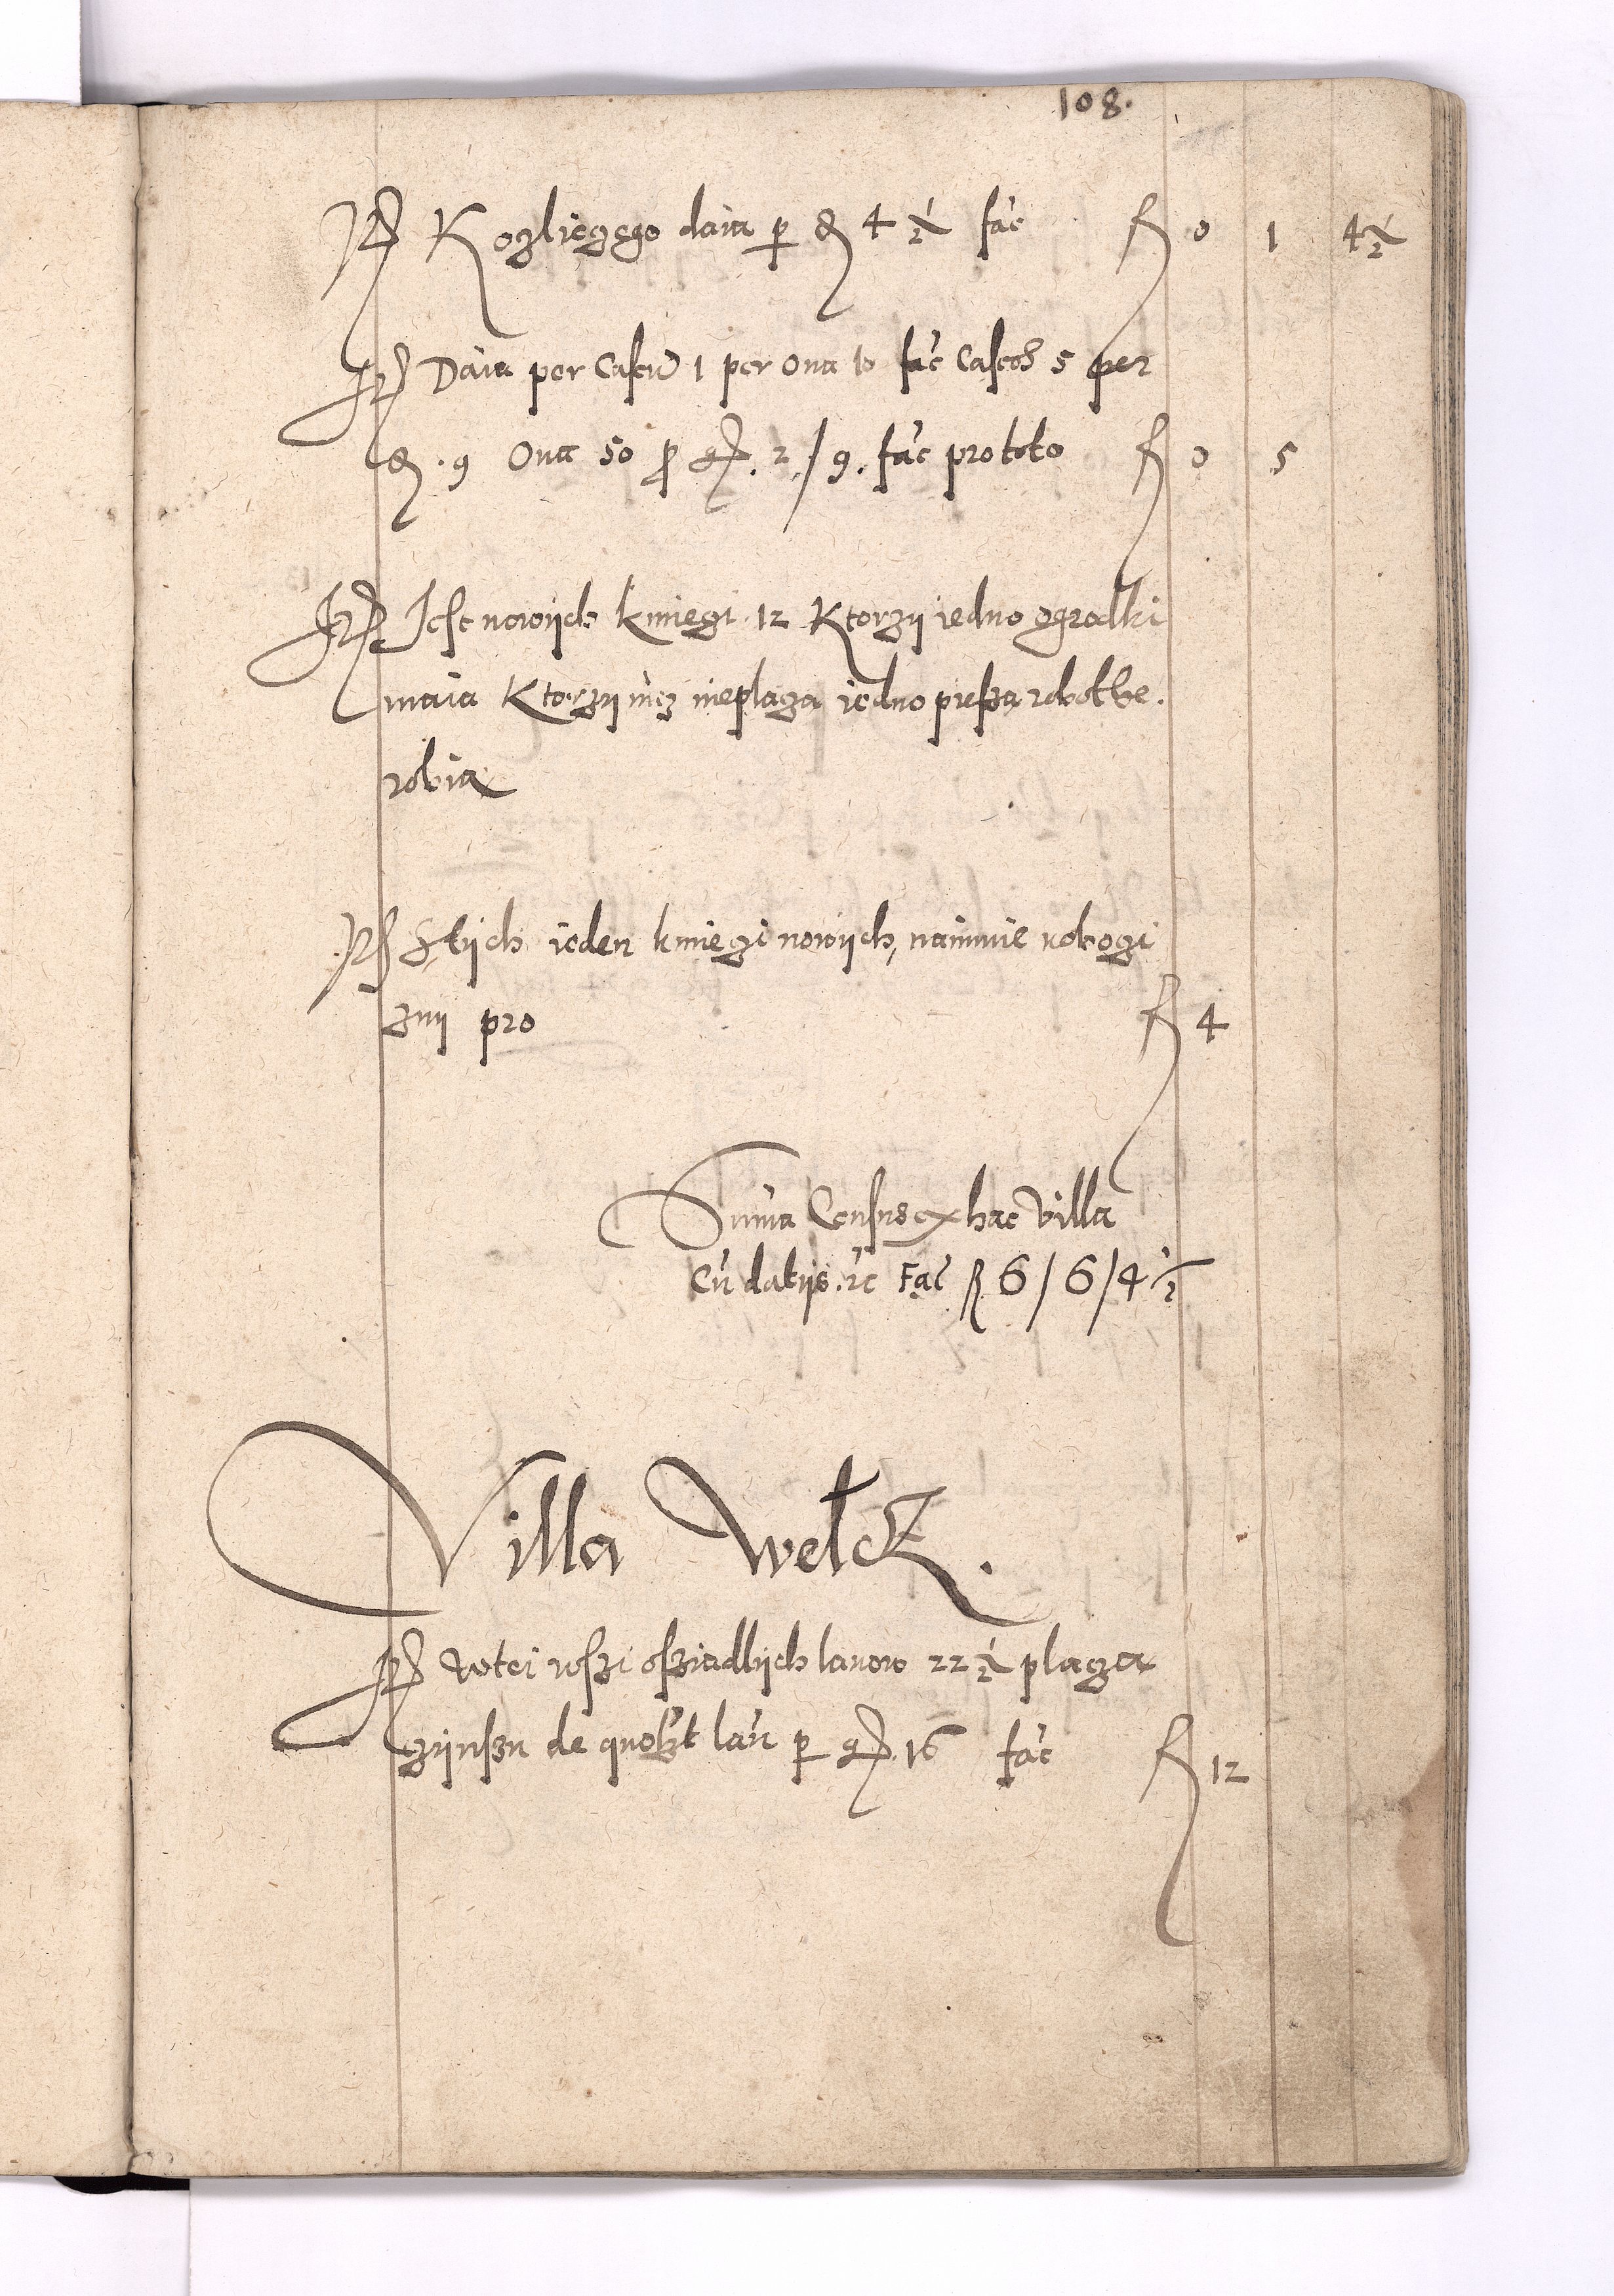 108.
It Kozliczego daia p₇ ꝺ 4 ½ fac̄ fl 0 1 4½
It Daia per Caseū 1 per Oua 10 fac̄ Caseos 5 per
ꝺ . 9 Oua 50 pro gr. 2 / 9. fac̄ pro toto fl 0 5
It Jest nowijch kmiegi 12 Ktorzij iedno ogrodki
maia Ktorzij nicz nieplaza iedno piesza robotke.
robia
It S tijch ieden kmiegi nowijch, naimuie
znij pro fl 4
Suma Census ex hac Villa
Cū datijs. ꝛc Fac̄ fl 6 / 6 / 4 ½
Villa Wełcz.
It Wtei wszi osziadlijch lanow 22 ½ plaza
zijnszu de quolibet lan̄ p₇ gr. 16 fac̄ fl 12